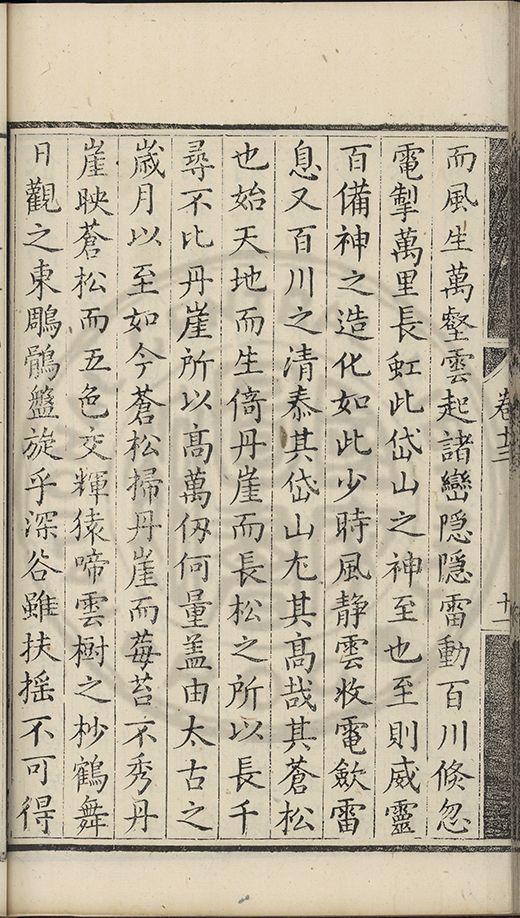 而風生萬壑雲起諸巒隱隱雷動百川倐忽
電掣萬里長虹此岱山之神至也至則威靈
百備神之造化如此少時風静雲收電歛雷
息又百川之清泰其岱山尢其高哉其蒼松
也始天地而生倚丹崖而長松之所以長千
尋不比丹崖所以高萬仭何量盖由太古之
歲月以至如今蒼松掃丹崖而莓苔不秀丹
崖映蒼松而五色交輝猿啼雲樹之杪鶴舞
日觀之東鵰鶻盤旋乎深谷雖扶摇不可得
卷十三
十一